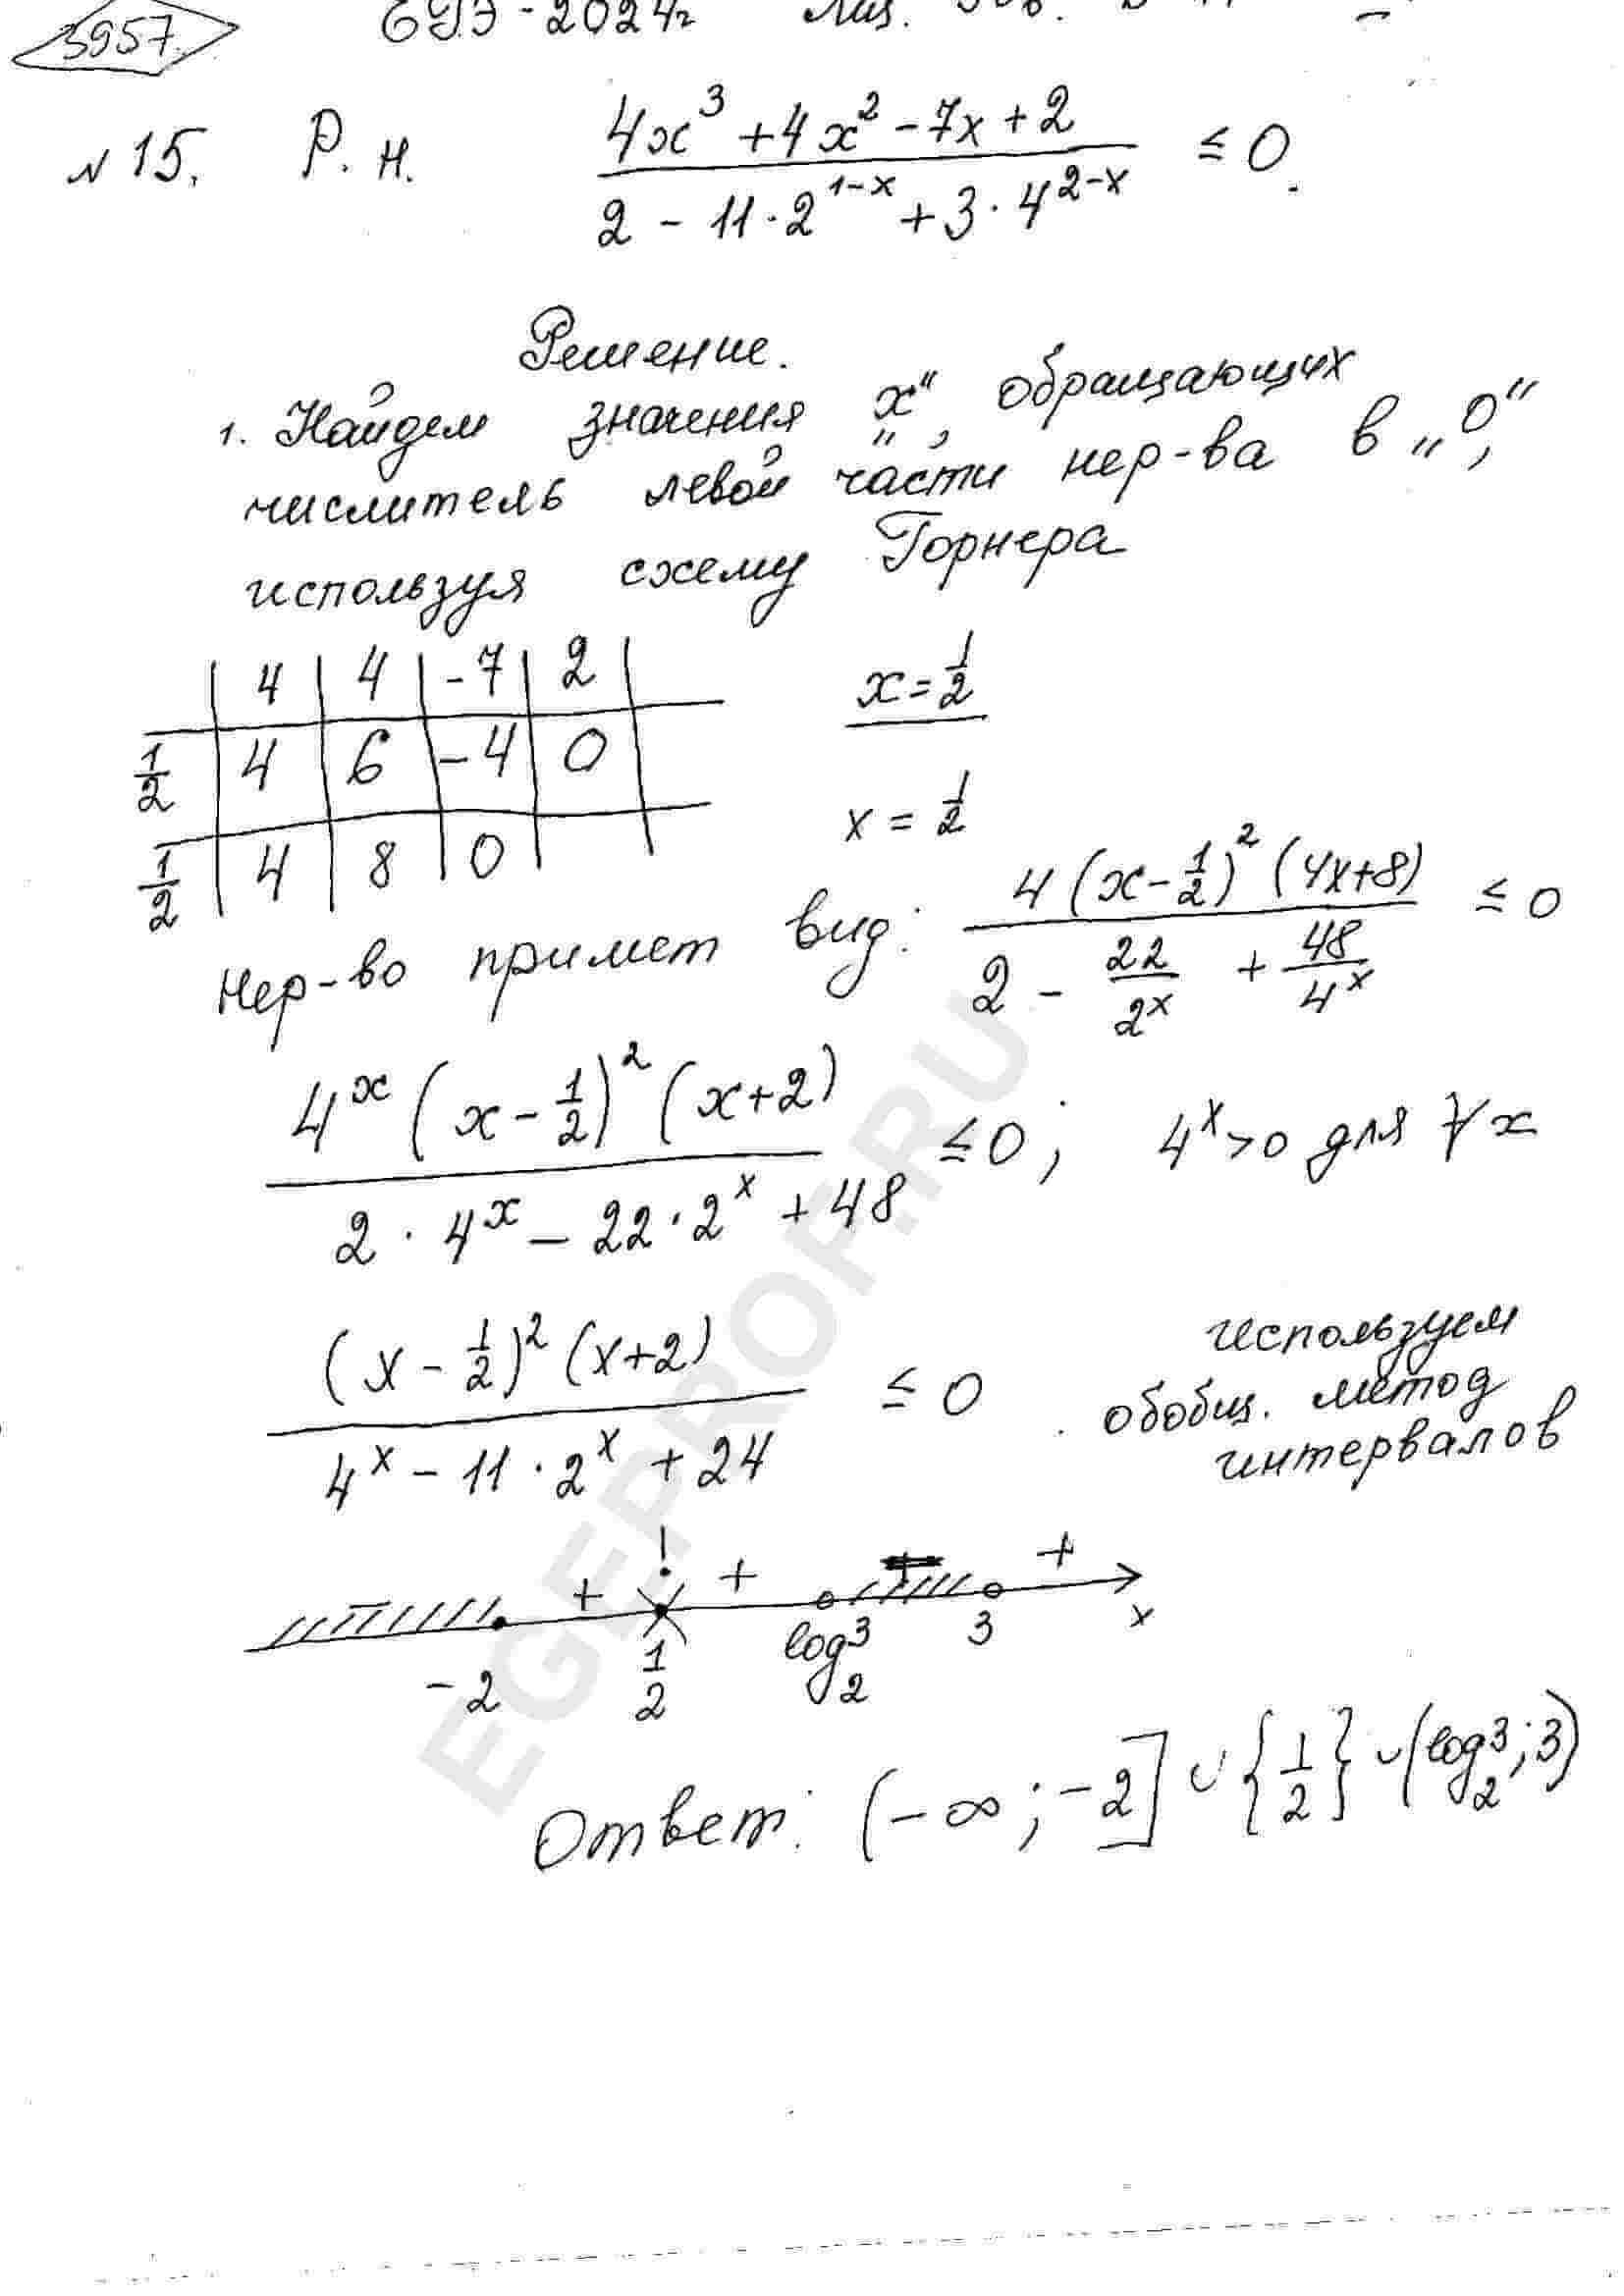 3957.
ЕГЭ - 2024г
№ 15. Р. н. (4x³ + 4x² - 7x + 2) / (2 - 11·2^(1-x) + 3·4^(2-x)) ≤ 0.
Решение.
1. Найдем значения „x“, обращающих
числитель левой части нер-ва в „0“,
используя схему Горнера
| 4 | 4 | -7 | 2 |
x = 1/2
1/2 | 4 | 6 | -4 | 0
x = 1/2
1/2 | 4 | 8 | 0 |
Нер-во примет вид: 4(x - 1/2)²(4x+8) / (2 - 22/2^x + 48/4^x) ≤ 0
4^x (x - 1/2)² (x+2) / (2·4^x - 22·2^x + 48) ≤ 0; 4^x > 0 для ∀x
(x - 1/2)² (x+2) / (4^x - 11·2^x + 24) ≤ 0
используем
обобщ. метод
интервалов
- + ! + +
-2 1/2 log₂3 3 x
Ответ: (-∞; -2] ∪ {1/2} ∪ (log₂3; 3)
EGEPROF.RU